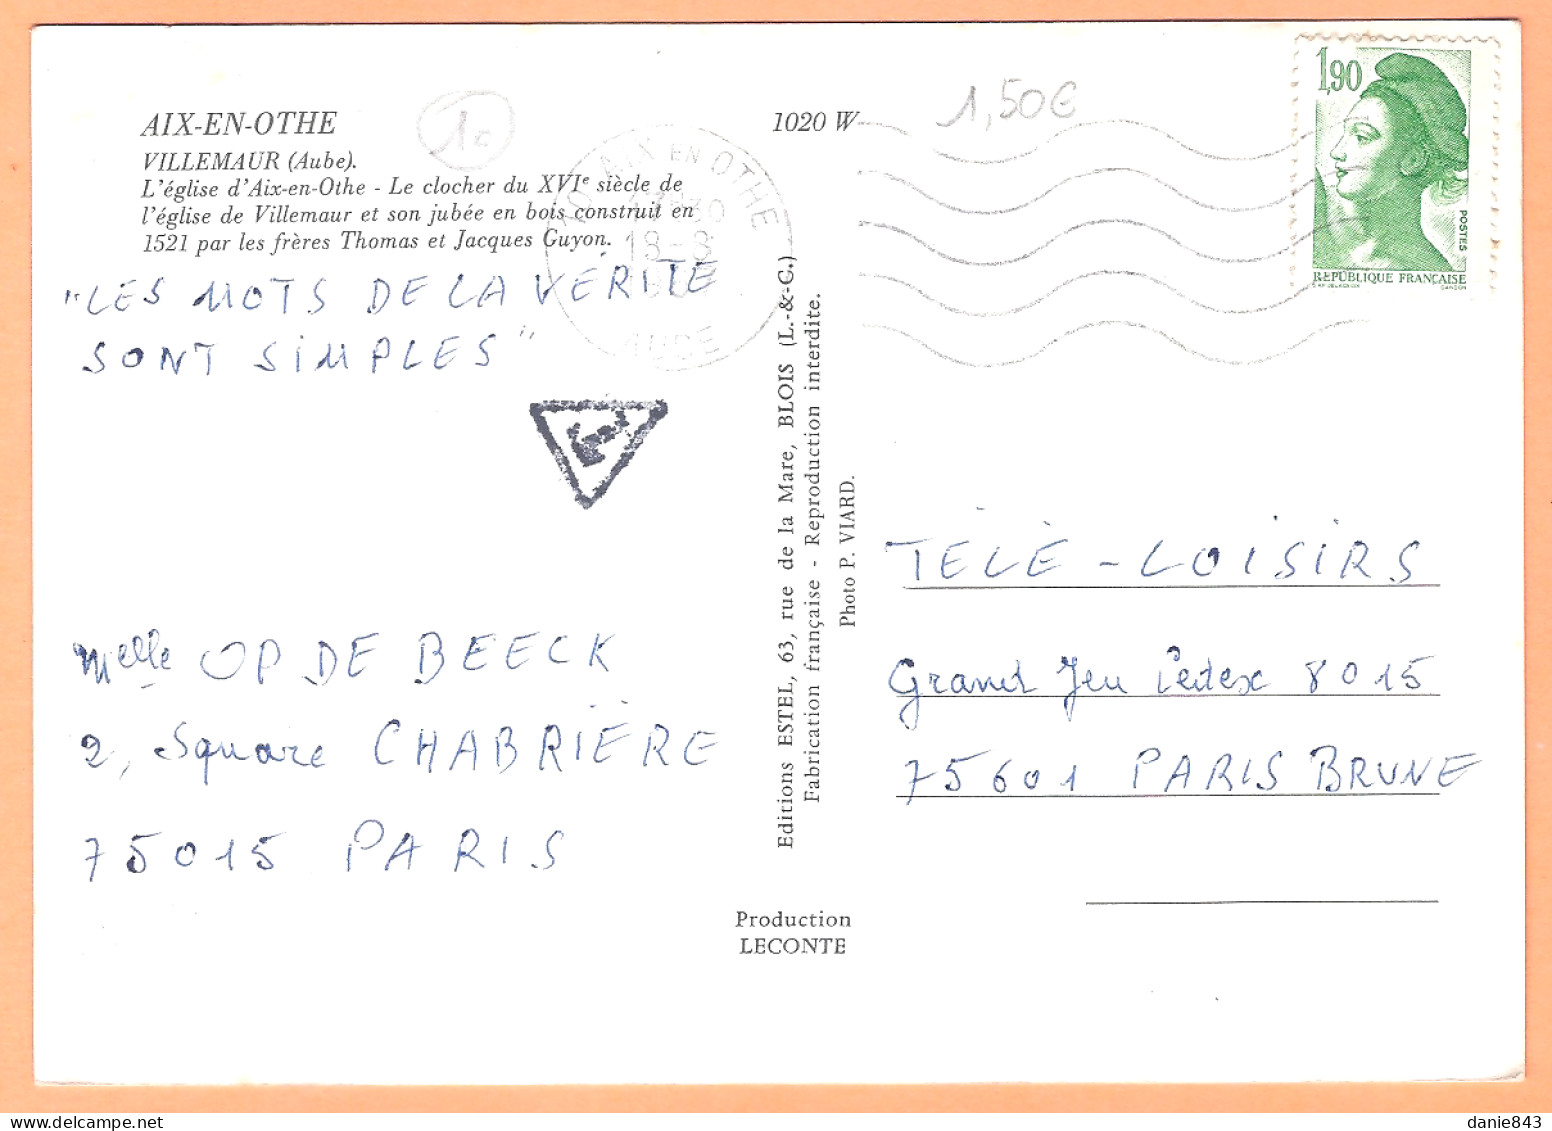 AIX-EN-OTHE
VILLEMAUR (Aube).
L'église d'Aix-en-Othe - Le clocher du XVIe siècle de
l'église de Villemaur et son jubée en bois construit en
1521 par les frères Thomas et Jacques Guyon.
1c
1020 W
1,50€
AIX EN OTHE
18-8
AUBE
1,90
POSTES
RÉPUBLIQUE FRANÇAISE
GANDON
"LES MOTS DE LA VÉRITÉ
SONT SIMPLES"
T
Melle OP DE BEECK
2, Square CHABRIÈRE
75015 PARIS
Editions ESTEL, 63, rue de la Mare, BLOIS (L.-&-C.)
Fabrication française - Reproduction interdite.
Photo P. VIARD.
Production
LECONTE
TÉLÉ-LOISIRS
Grand Jeu Cedex 8015
75601 PARIS BRUNE
danie843